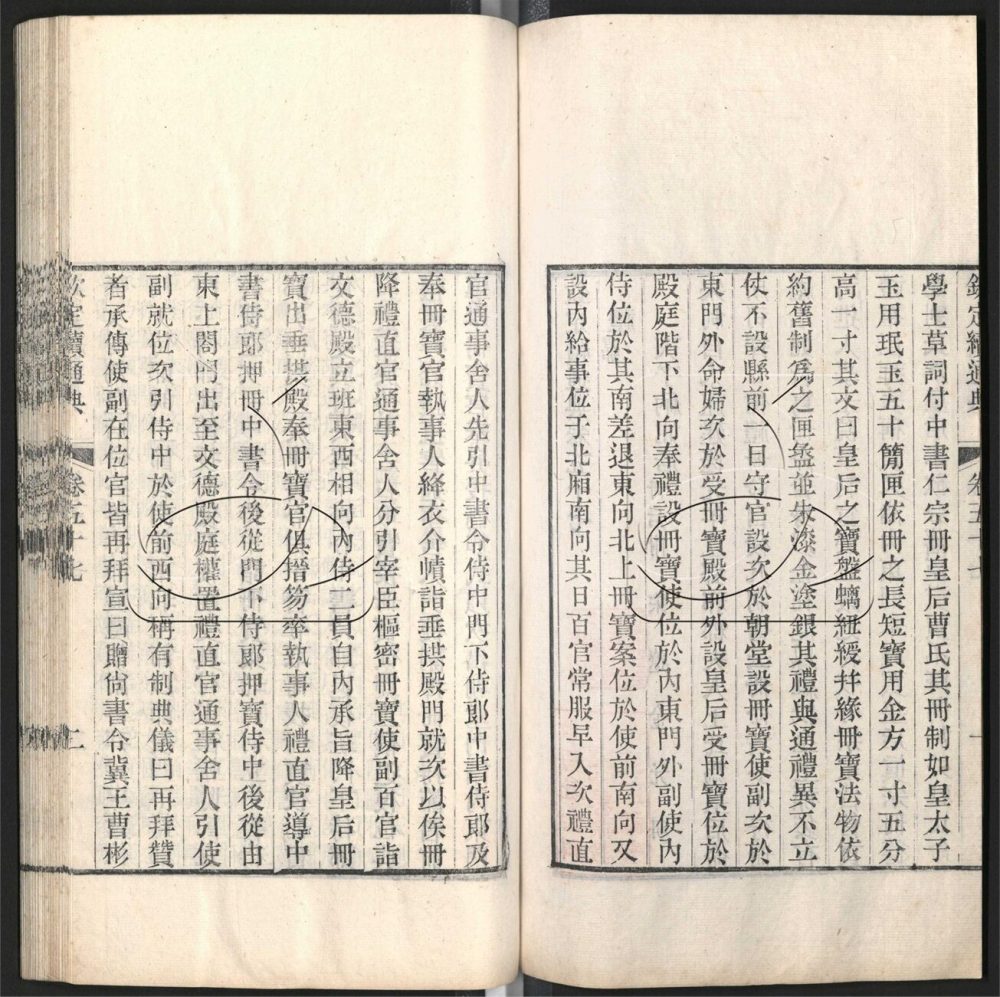 欽定續通典 卷五十七
學士草詞付中書仁宗冊皇后曹氏其冊制如皇太子
玉用珉玉五十簡匣依冊之長短寶用金方一寸五分
高一寸其文曰皇后之寶盤螭紐綬幷緣冊寶法物依
約舊制爲之匣盝並朱漆金塗銀其禮與通禮異不立
仗不設縣前一日守宮設次於朝堂設冊寶使副次於
東門外命婦次於受冊寶殿前外設皇后受冊寶位於
殿庭階下北向奉禮設冊寶使位於內東門外副使內
侍位於其南差退東向北上冊寶案位於使前南向又
設內給事位于北廂南向其日百官常服早入次禮直
官通事舍人先引中書令侍中門下侍郎中書侍郎及
奉冊寶官執事人絳衣介幘詣垂拱殿門就次以俟冊
降禮直官通事舍人分引宰臣樞密冊寶使副百官詣
文德殿立班東西相向內侍二員自內承旨降皇后冊
寶出垂拱殿奉冊寶官俱搢笏率執事人禮直官導中
書侍郎押冊中書令後從門下侍郎押寶侍中後從由
東上閤門出至文德殿庭權置禮直官通事舍人引使
副就位次引侍中於使前西向稱有制典儀曰再拜贊
者承傳使副在位官皆再拜宣曰贈尙書令冀王曹彬
欽定續通典 卷五十七 二